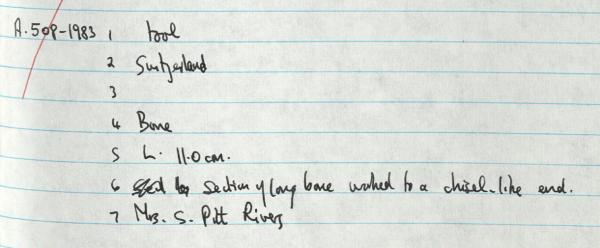 A.509-1983 1 tool
2 Switzerland
3
4 Bone
5 L. 11.0cm.
6 section of long bone worked to a chisel-like end.
7 Mrs. S. Pitt Rivers